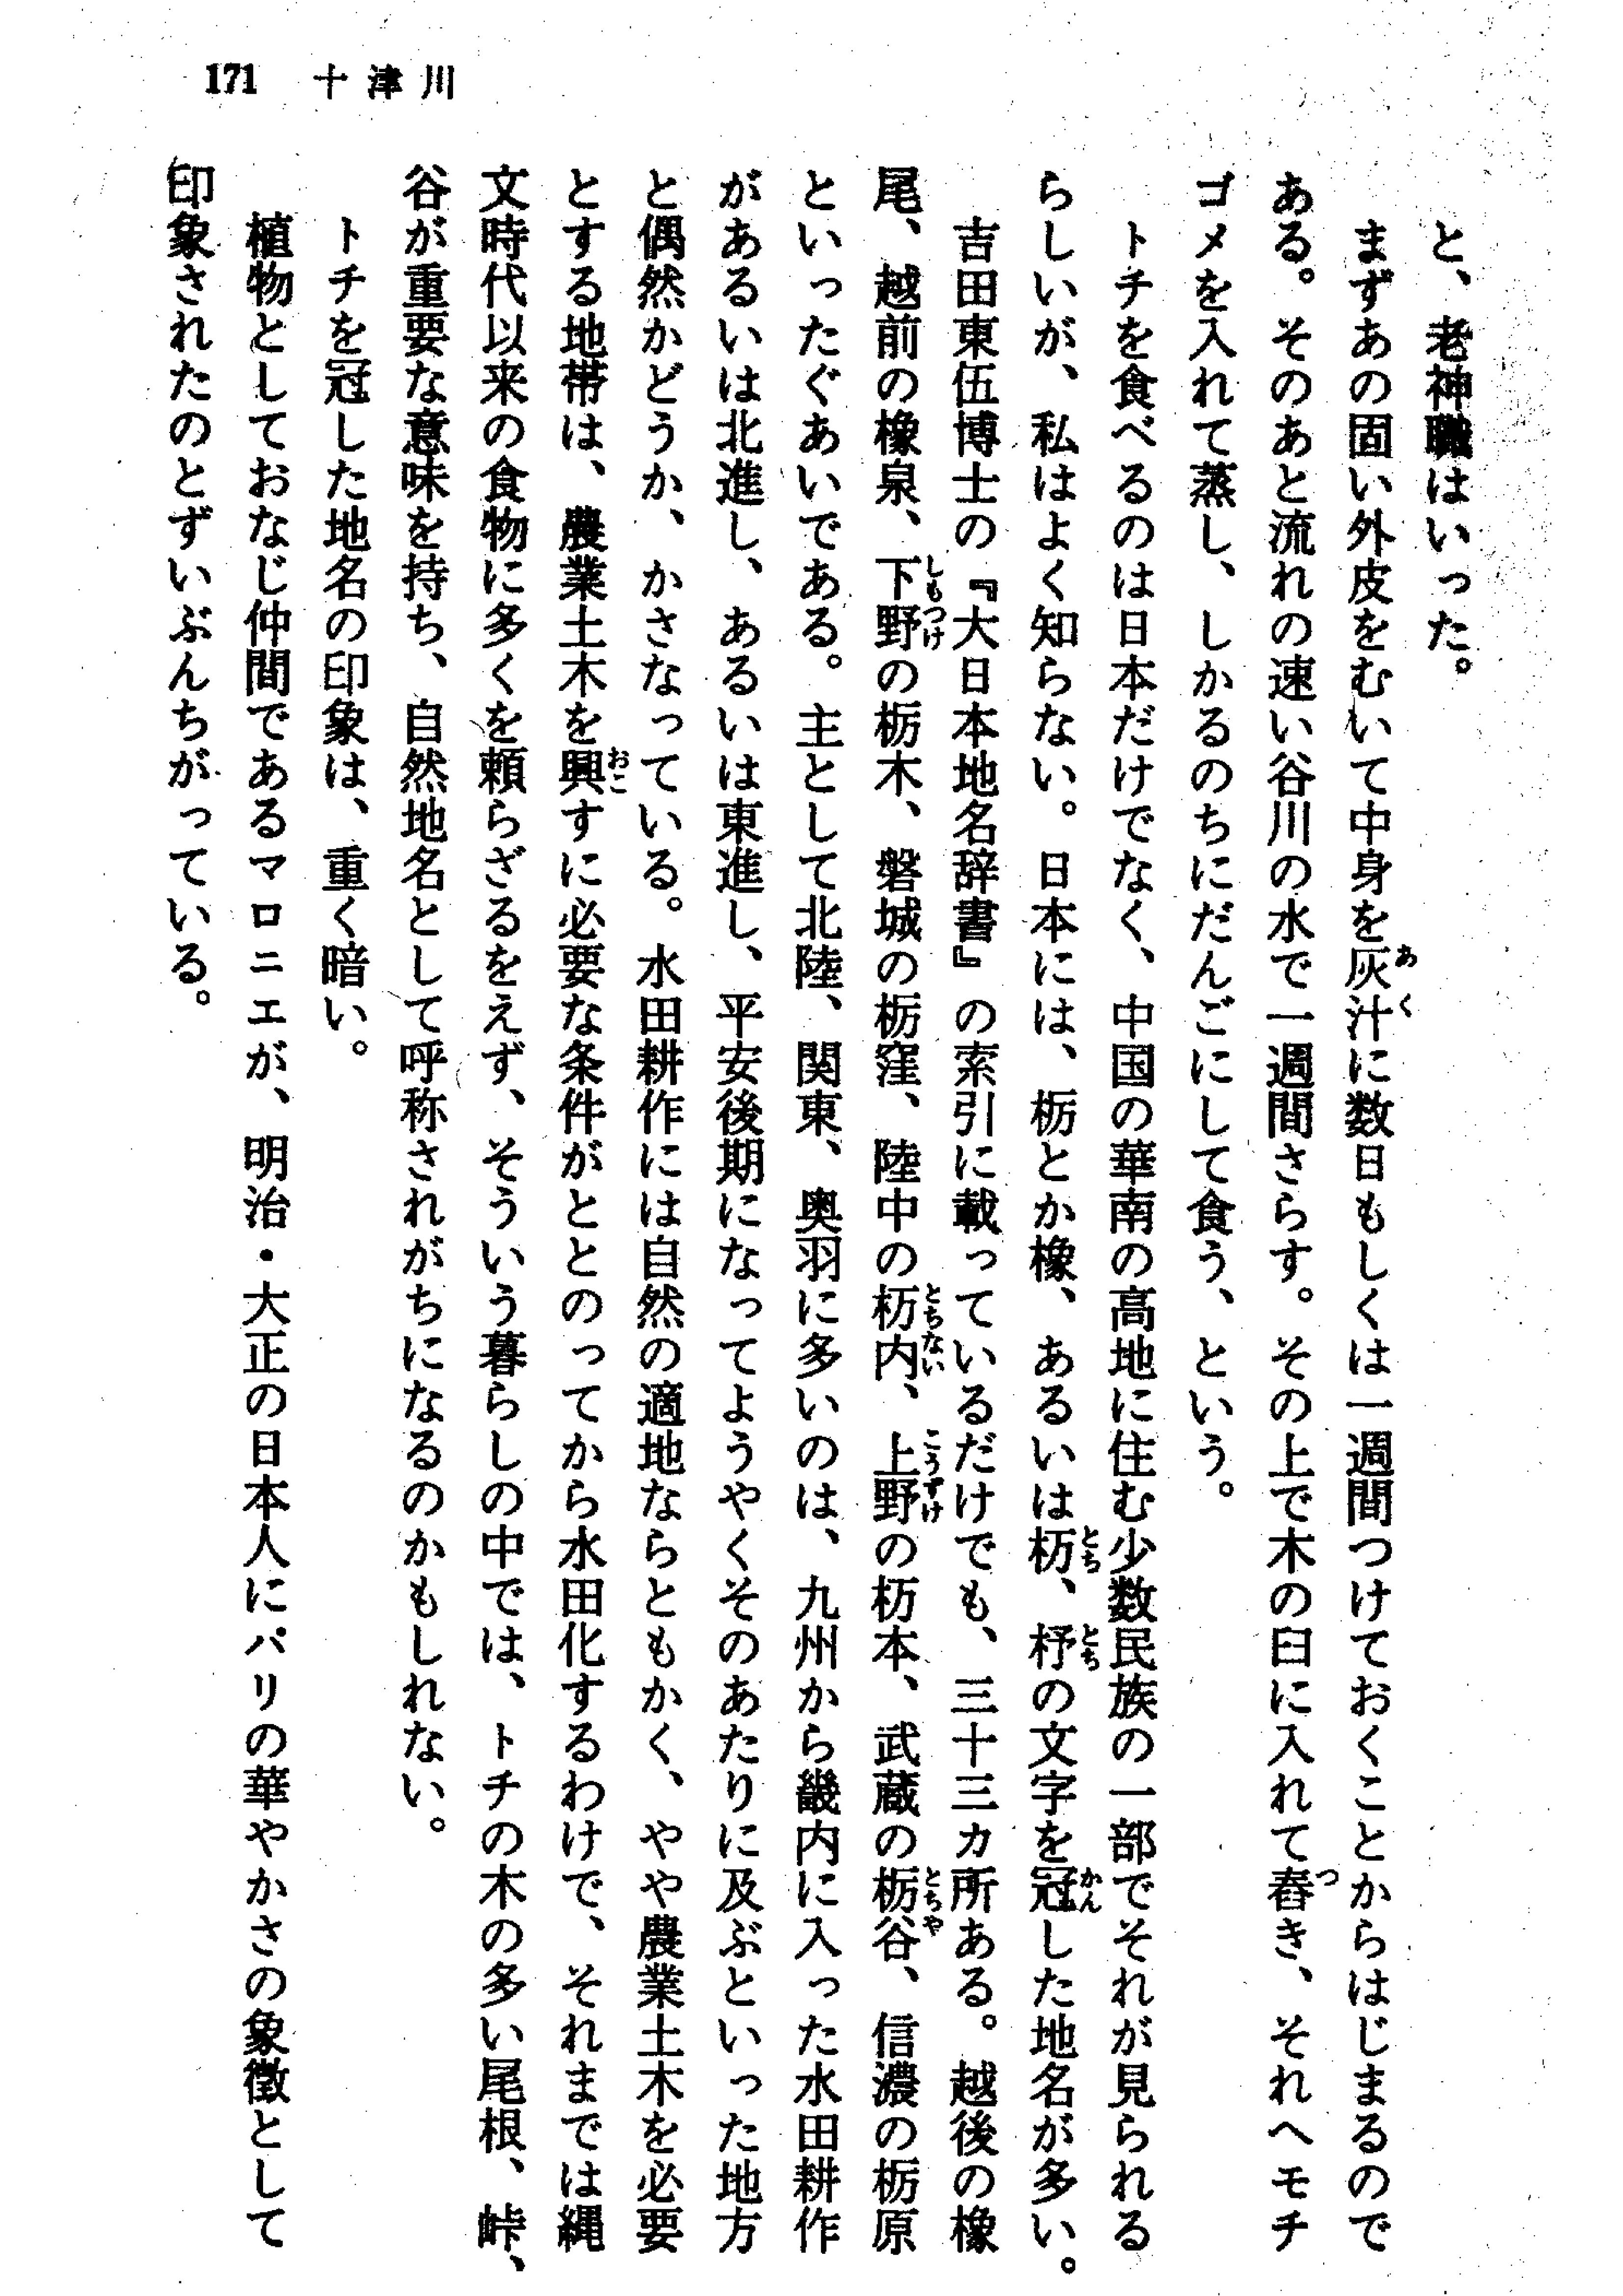 171 十津川
と、老神職はいった。
まずあの固い外皮をむいて中身を灰汁に数日もしくは一週間つけておくことからはじまるので
ある。そのあと流れの速い谷川の水で一週間さらす。その上で木の臼に入れて舂き、それへモチ
ゴメを入れて蒸し、しかるのちにだんごにして食う、という。
トチを食べるのは日本だけでなく、中国の華南の高地に住む少数民族の一部でそれが見られる
らしいが、私はよく知らない。日本には、栃とか橡、あるいは杤、杼の文字を冠した地名が多い。
吉田東伍博士の『大日本地名辞書』の索引に載っているだけでも、三十三カ所ある。越後の橡
尾、越前の橡泉、下野の栃木、磐城の栃窪、陸中の杤内、上野の杤本、武蔵の栃谷、信濃の栃原
といったぐあいである。主として北陸、関東、奥羽に多いのは、九州から畿内に入った水田耕作
があるいは北進し、あるいは東進し、平安後期になってようやくそのあたりに及ぶといった地方
と偶然かどうか、かさなっている。水田耕作には自然の適地ならともかく、やや農業土木を必要
とする地帯は、農業土木を興すに必要な条件がととのってから水田化するわけで、それまでは縄
文時代以来の食物に多くを頼らざるをえず、そういう暮らしの中では、トチの木の多い尾根、峠、
谷が重要な意味を持ち、自然地名として呼称されがちになるのかもしれない。
トチを冠した地名の印象は、重く暗い。
植物としておなじ仲間であるマロニエが、明治・大正の日本人にパリの華やかさの象徴として
印象されたのとずいぶんちがっている。